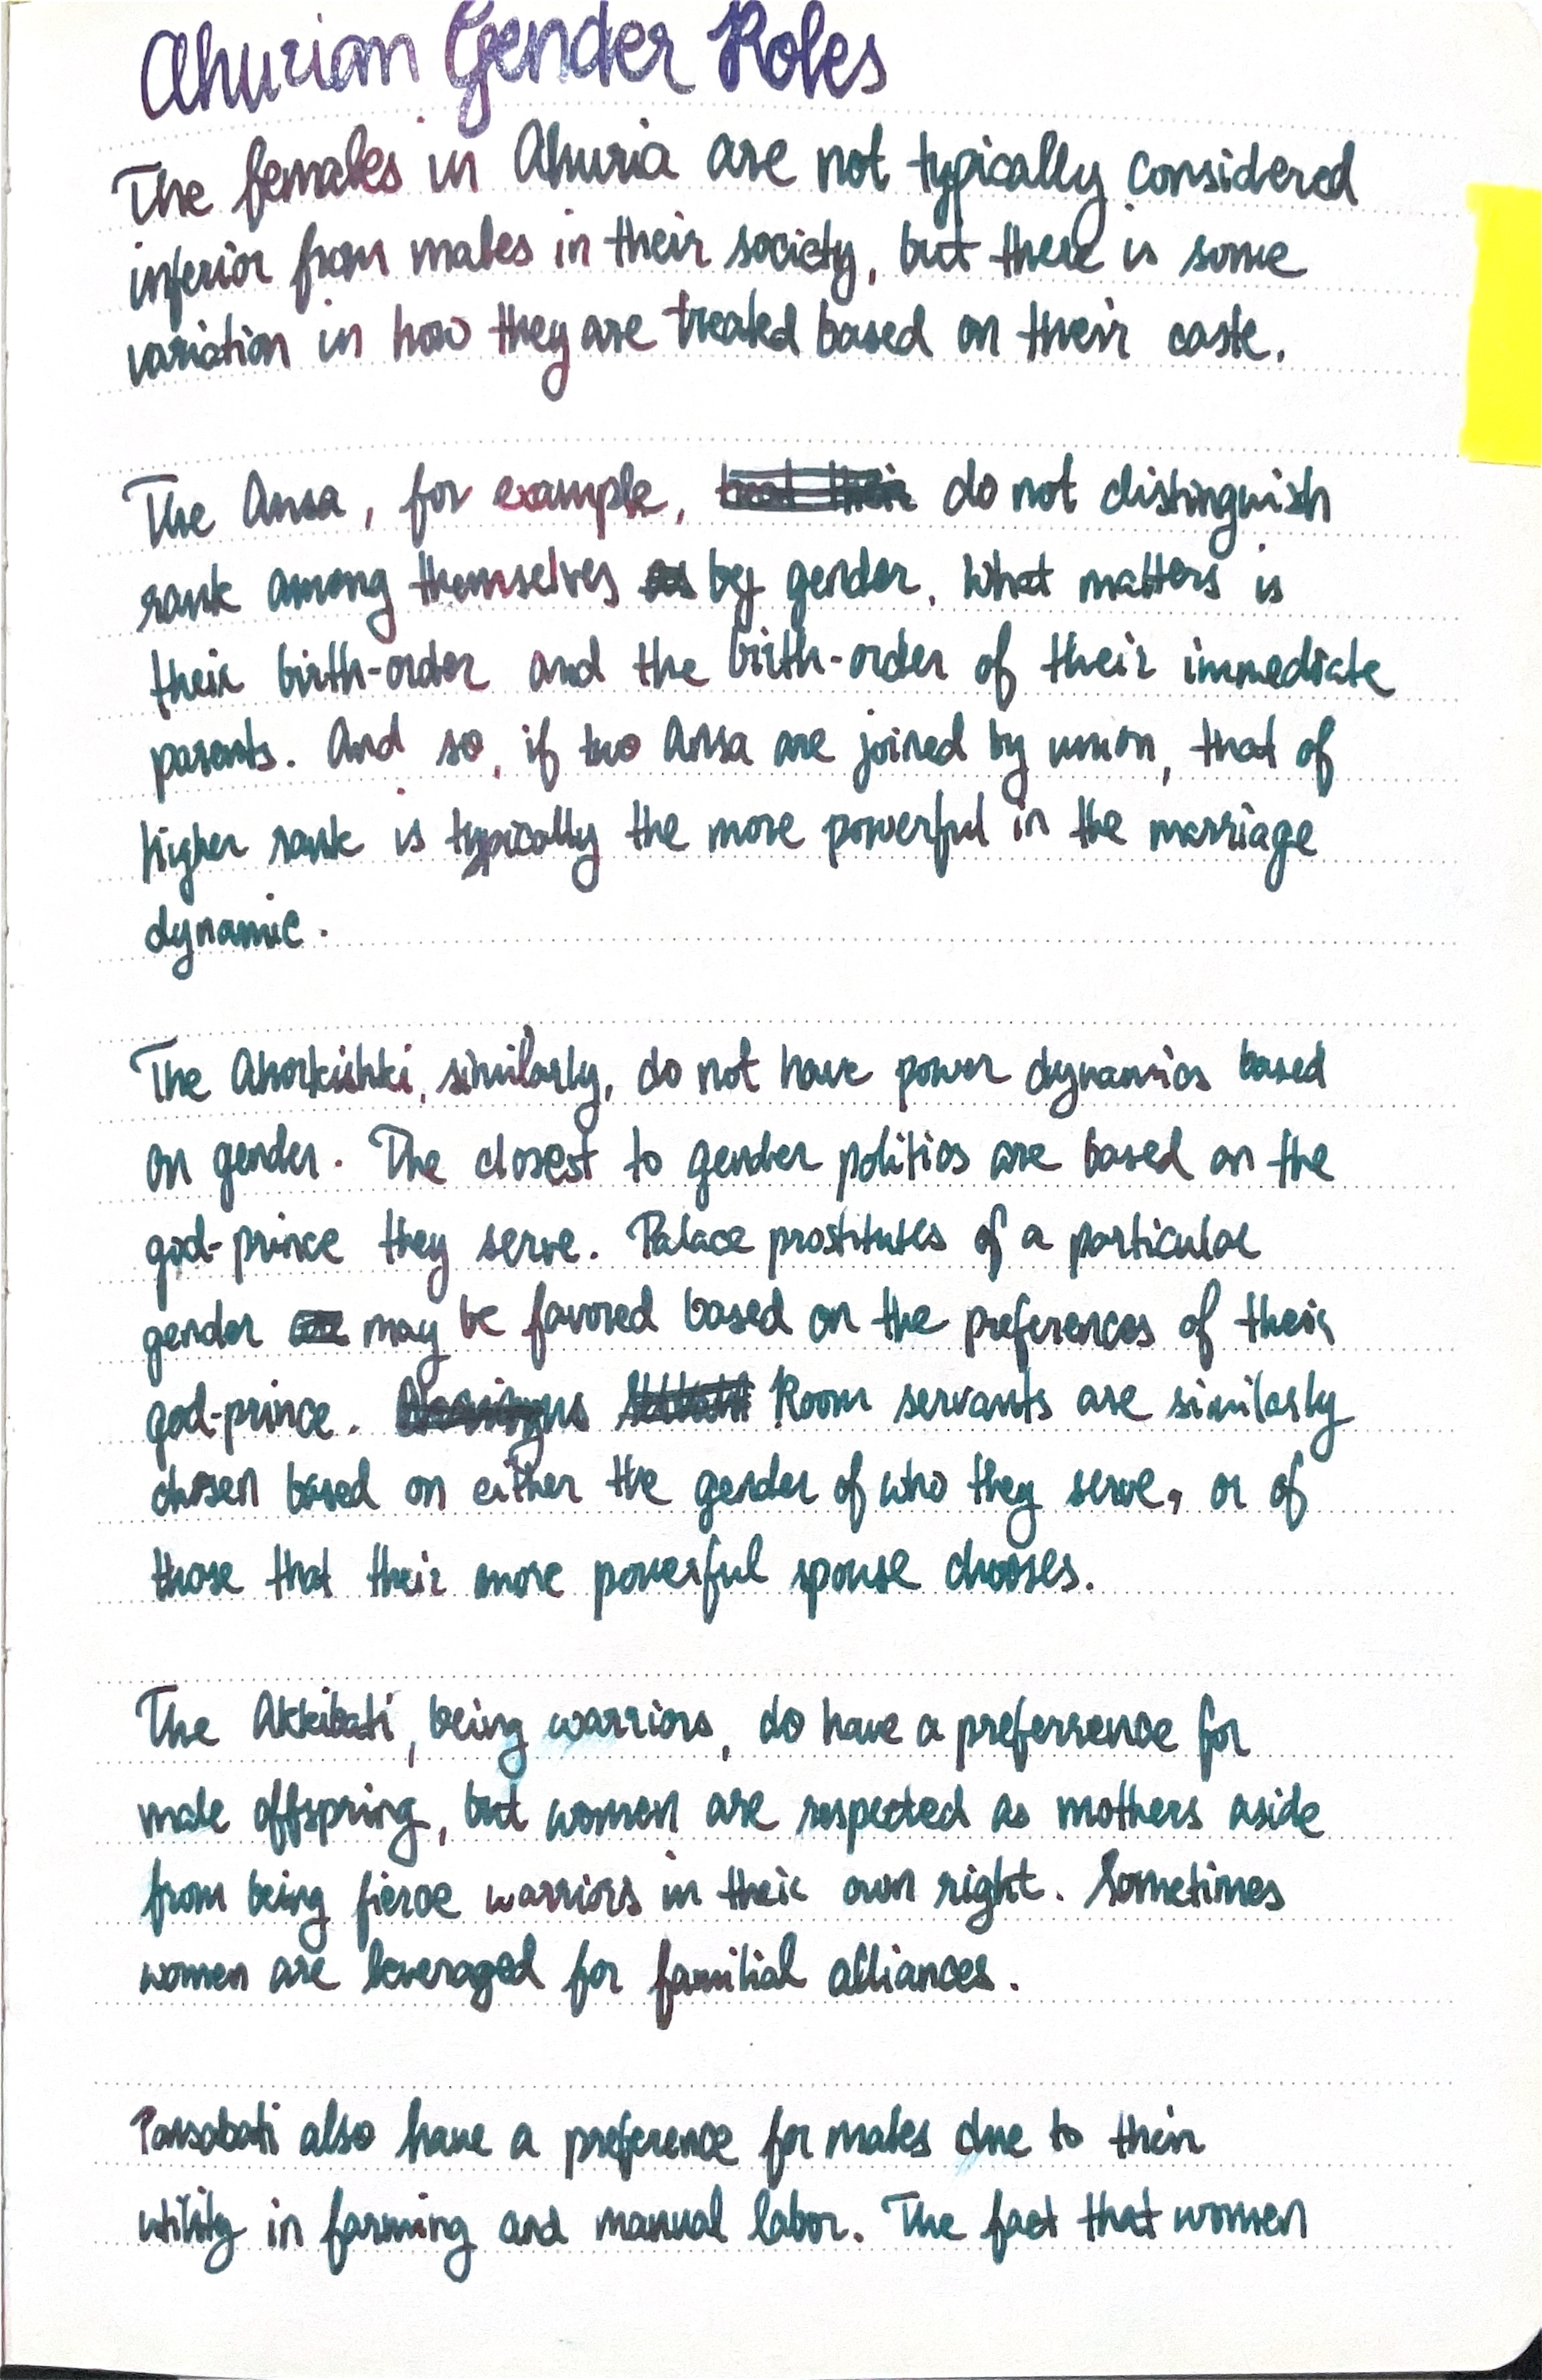 Ahurian Gender Roles
The females in Ahuria are not typically considered
inferior from males in their society, but there is some
variation in how they are treated based on their caste.
The Ansa, for example, do not distinguish
rank among themselves by gender. What matters is
their birth-order and the birth-order of their immediate
parents. And so, if two Ansa are joined by union, that of
higher rank is typically the more powerful in the marriage
dynamic.
The Ahorkishki, similarly, do not have power dynamics based
on gender. The closest to gender politics are based on the
god-prince they serve. Palace prostitutes of a particular
gender may be favored based on the preferences of their
god-prince. Room servants are similarly
chosen based on either the gender of who they serve, or of
those that their more powerful spouse chooses.
The Akkibati, being warriors, do have a preferrence for
male offspring, but women are respected as mothers aside
from being fierce warriors in their own right. Sometimes
women are leveraged for familial alliances.
also have a preference for males due to their
utility in farming and manual labor. The fact that women